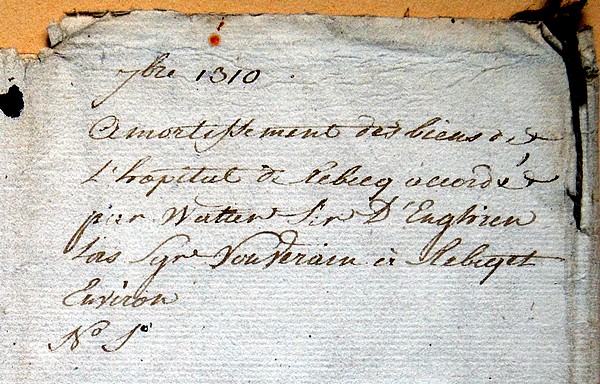 7bre 1310
Amortissement des biens de
L'hopital de Rebecq accordé
par Watier Sir D'Enghien
Lors Sgr Souverain à Rebecq et
Environ
No 1o